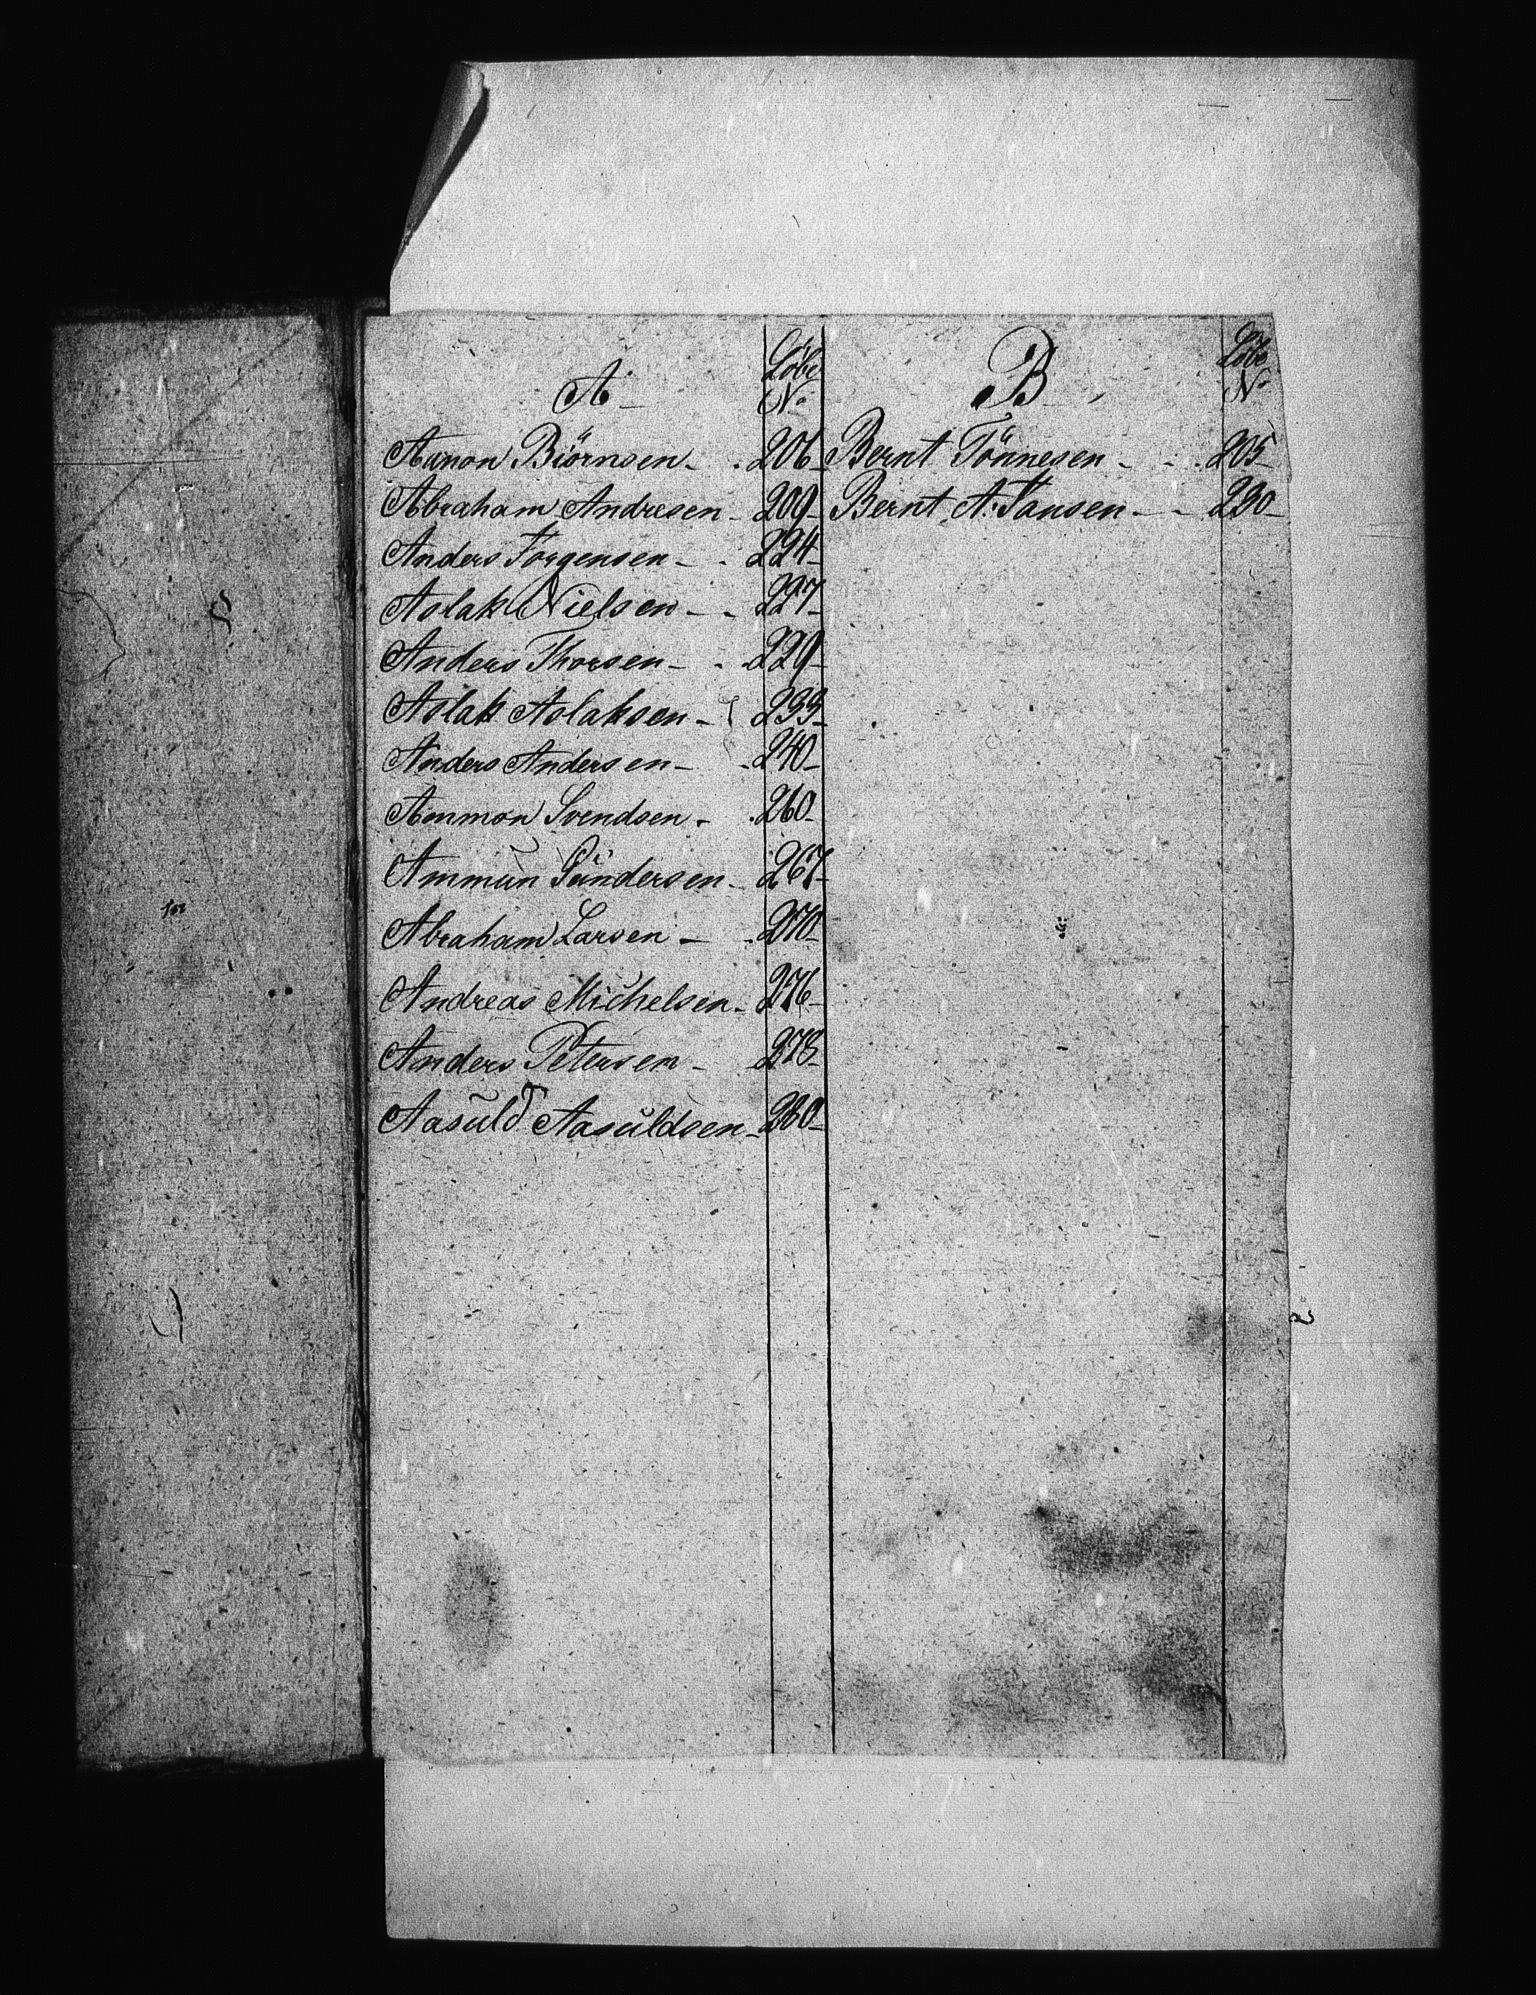 A
Løbe
No
Aanon Biörnsen 206
Abraham Andresen 209
Anders Jorgensen 224
Aslak Nielsen 227
Anders Thorsen 229
Aslak Aslaksen 233
Anders Andersen 240
Ammon Svendsen 260
Ammun Gundersen 267
Abraham Larsen 270
Andreas Michelsen 276
Anders Petersen 278
Aasuld Aasuldsen 280
B
Løbe
No
Bernt Tönnesen 205
Bernt A. Jansen 230